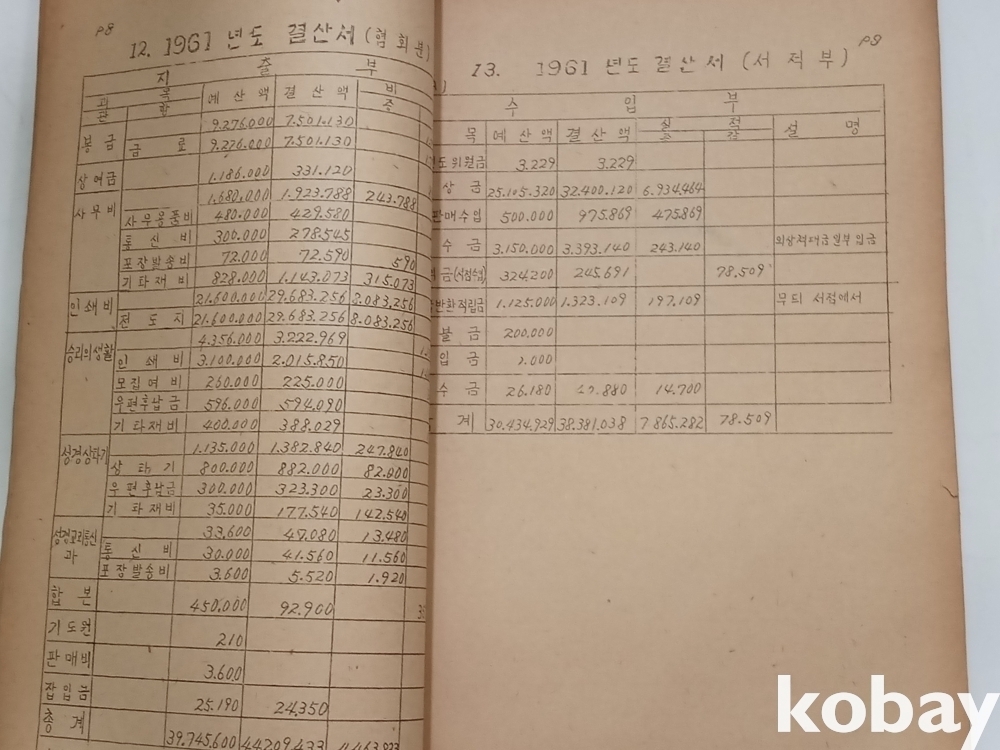 P8
12. 1961 년도 결산서 (협회분)
지 출 부
과 목 예산액 결산액 비
관 항 증
봉급 9.276.000 7.501.130
급료 9.276.000 7.501.130
상여금 1.186.000 331.120
사무비 1.680.000 1.923.788 243.788
사무용품비 480.000 429.580
통신비 300.000 278.545
포장발송비 72.000 72.590 590
기타재비 828.000 1.143.073 315.073
인쇄비 21.600.000 29.683.256 8.083.256
전도지 21.600.000 29.683.256 8.083.256
승리의생활 4.356.000 3.222.969
인쇄비 3.100.000 2.015.850
모집여비 260.000 225.000
우편후납금 596.000 594.090
기타재비 400.000 388.029
성경상타기 1.135.000 1.382.840 247.840
상타기 800.000 882.000 82.000
우편후납금 300.000 323.300 23.300
기타재비 35.000 177.540 142.540
성경교리통신과 33.600 47.080 13.480
통신비 30.000 41.560 11.560
포장발송비 3.600 5.520 1.920
합본 450.000 92.900
기도원 210
판매비 3.600
잡입금 25.190 24.350
총계 39.745.600 44.209.433
P9
13. 1961 년도 결산서 (서적부)
수 입 부
목 예산액 결산액 실적 설명
증 감
도위원금 3.229 3.229
상금 25.105.320 32.400.120 6.934.464
판매수입 500.000 975.869 475.869
수금 3.150.000 3.393.140 243.140 외상책대금일부입금
금(서점수입) 324.200 245.691 78.509
반환적립금 1.125.000 1.323.109 197.109 무듸 서점에서
불금 200.000
입금 .000
수금 26.180 .880 14.700
계 30.434.929 38.381.038 7.865.282 78.509
kobay